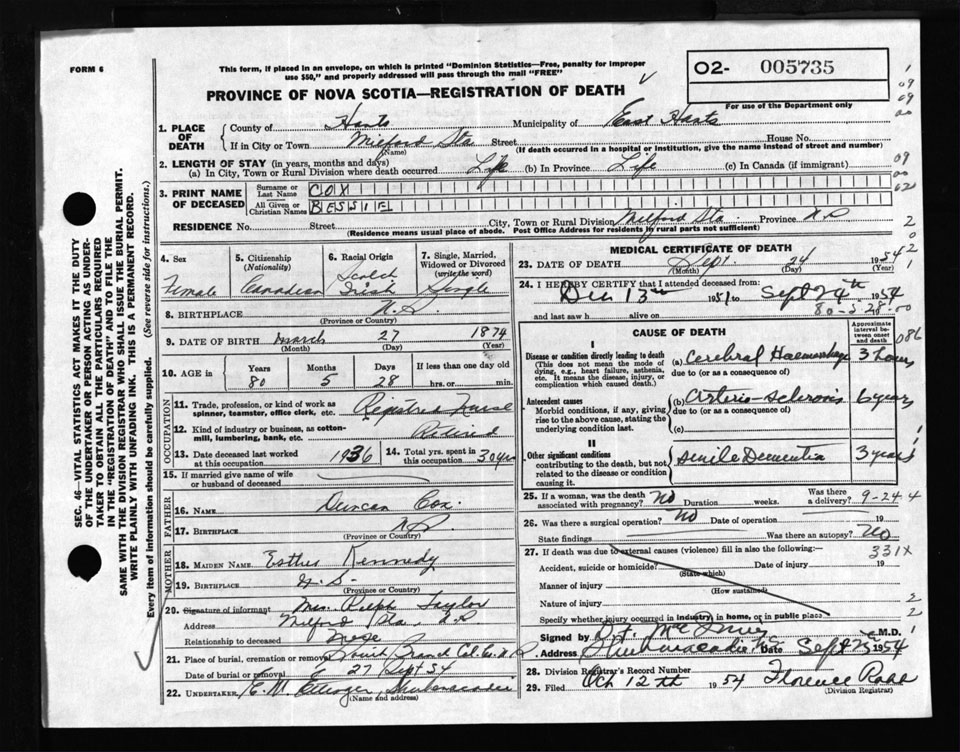 FORM 6
This form, if placed in an envelope, on which is printed "Dominion Statistics—Free, penalty for improper
use $50," and properly addressed will pass through the mail "FREE"
O2- 005735
For use of the Department only
PROVINCE OF NOVA SCOTIA—REGISTRATION OF DEATH
1. PLACE OF DEATH
County of Hants Municipality of East Hants
If in City or Town Milford Sta Street House No.
(Name) (If death occurred in a hospital or institution, give the name instead of street and number)
2. LENGTH OF STAY (in years, months and days)
(a) In City, Town or Rural Division where death occurred Life (b) In Province Life (c) In Canada (if immigrant)
3. PRINT NAME OF DECEASED
Surname or Last Name COX
All Given or Christian Names BESSIE
RESIDENCE No. Street City, Town or Rural Division Milford Sta. Province N.S.
(Residence means usual place of abode. Post Office Address for residents of rural parts not sufficient)
4. Sex Female
5. Citizenship (Nationality) Canadian
6. Racial Origin Scotch Irish
7. Single, Married, Widowed or Divorced (write the word) Single
8. BIRTHPLACE N.S.
(Province or Country)
9. DATE OF BIRTH March 27 1874
(Month) (Day) (Year)
10. AGE in Years 80 Months 5 Days 28 If less than one day old hrs. or min.
OCCUPATION
11. Trade, profession, or kind of work as spinner, teamster, office clerk, etc. Registered Nurse
12. Kind of industry or business, as cotton-mill, lumbering, bank, etc. Retired
13. Date deceased last worked at this occupation 1936
14. Total yrs. spent in this occupation 30 yrs
15. If married give name of wife or husband of deceased
FATHER
16. NAME Duncan Cox
17. BIRTHPLACE N.S.
(Province or Country)
MOTHER
18. MAIDEN NAME Esther Kennedy
19. BIRTHPLACE N.S.
(Province or Country)
20. Signature of informant Mrs. Ralph Taylor
Address Milford Sta, N.S.
Relationship to deceased Niece
21. Place of burial, cremation or removal Branch Col. Co. N.S.
Date of burial or removal 27 Sept 54
22. UNDERTAKER E. W. Shubenacadie
(Name and address)
MEDICAL CERTIFICATE OF DEATH
23. DATE OF DEATH Sept. 24 1954
(Month) (Day) (Year)
24. I HEREBY CERTIFY that I attended deceased from:
Dec 13th 1951 to Sept 24th 1954
and last saw h alive on 80-5-28-00
CAUSE OF DEATH
Approximate interval between onset and death
I
Disease or condition directly leading to death
(This does not mean the mode of dying, e.g., heart failure, asthenia, etc. It means the disease, injury, or complication which caused death.)
(a) Cerebral Haemorrhage 3 hours
due to (or as a consequence of)
Antecedent causes
Morbid conditions, if any, giving rise to the above cause, stating the underlying condition last.
(b) Arterio-sclerosis 6 years
due to (or as a consequence of)
(c)
II
Other significant conditions
contributing to the death, but not related to the disease or condition causing it.
Senile Dementia 3 years
25. If a woman, was the death associated with pregnancy? No Duration weeks. Was there a delivery? 9-24-4
26. Was there a surgical operation? No Date of operation 19
State findings Was there an autopsy? No
27. If death was due to external causes (violence) fill in also the following:— 331X
Accident, suicide or homicide? Date of injury 19
(State which)
Manner of injury
(How sustained)
Nature of injury
Specify whether injury occurred in industry, in home, or in public place
Signed by M.D.
Address Shubenacadie Date Sept 25 1954
28. Division Registrar's Record Number
29. Filed Oct 12th 1954 Florence
(Division Registrar)
SEC. 46—VITAL STATISTICS ACT MAKES IT THE DUTY
OF THE UNDERTAKER OR PERSON ACTING AS UNDER-
TAKER TO OBTAIN ALL THE PARTICULARS REQUIRED
IN THE "REGISTRATION OF DEATH" AND TO FILE THE
SAME WITH THE DIVISION REGISTRAR WHO SHALL ISSUE THE BURIAL PERMIT.
WRITE PLAINLY WITH UNFADING INK. THIS IS A PERMANENT RECORD.
Every item of information should be carefully supplied. (See reverse side for instructions.)